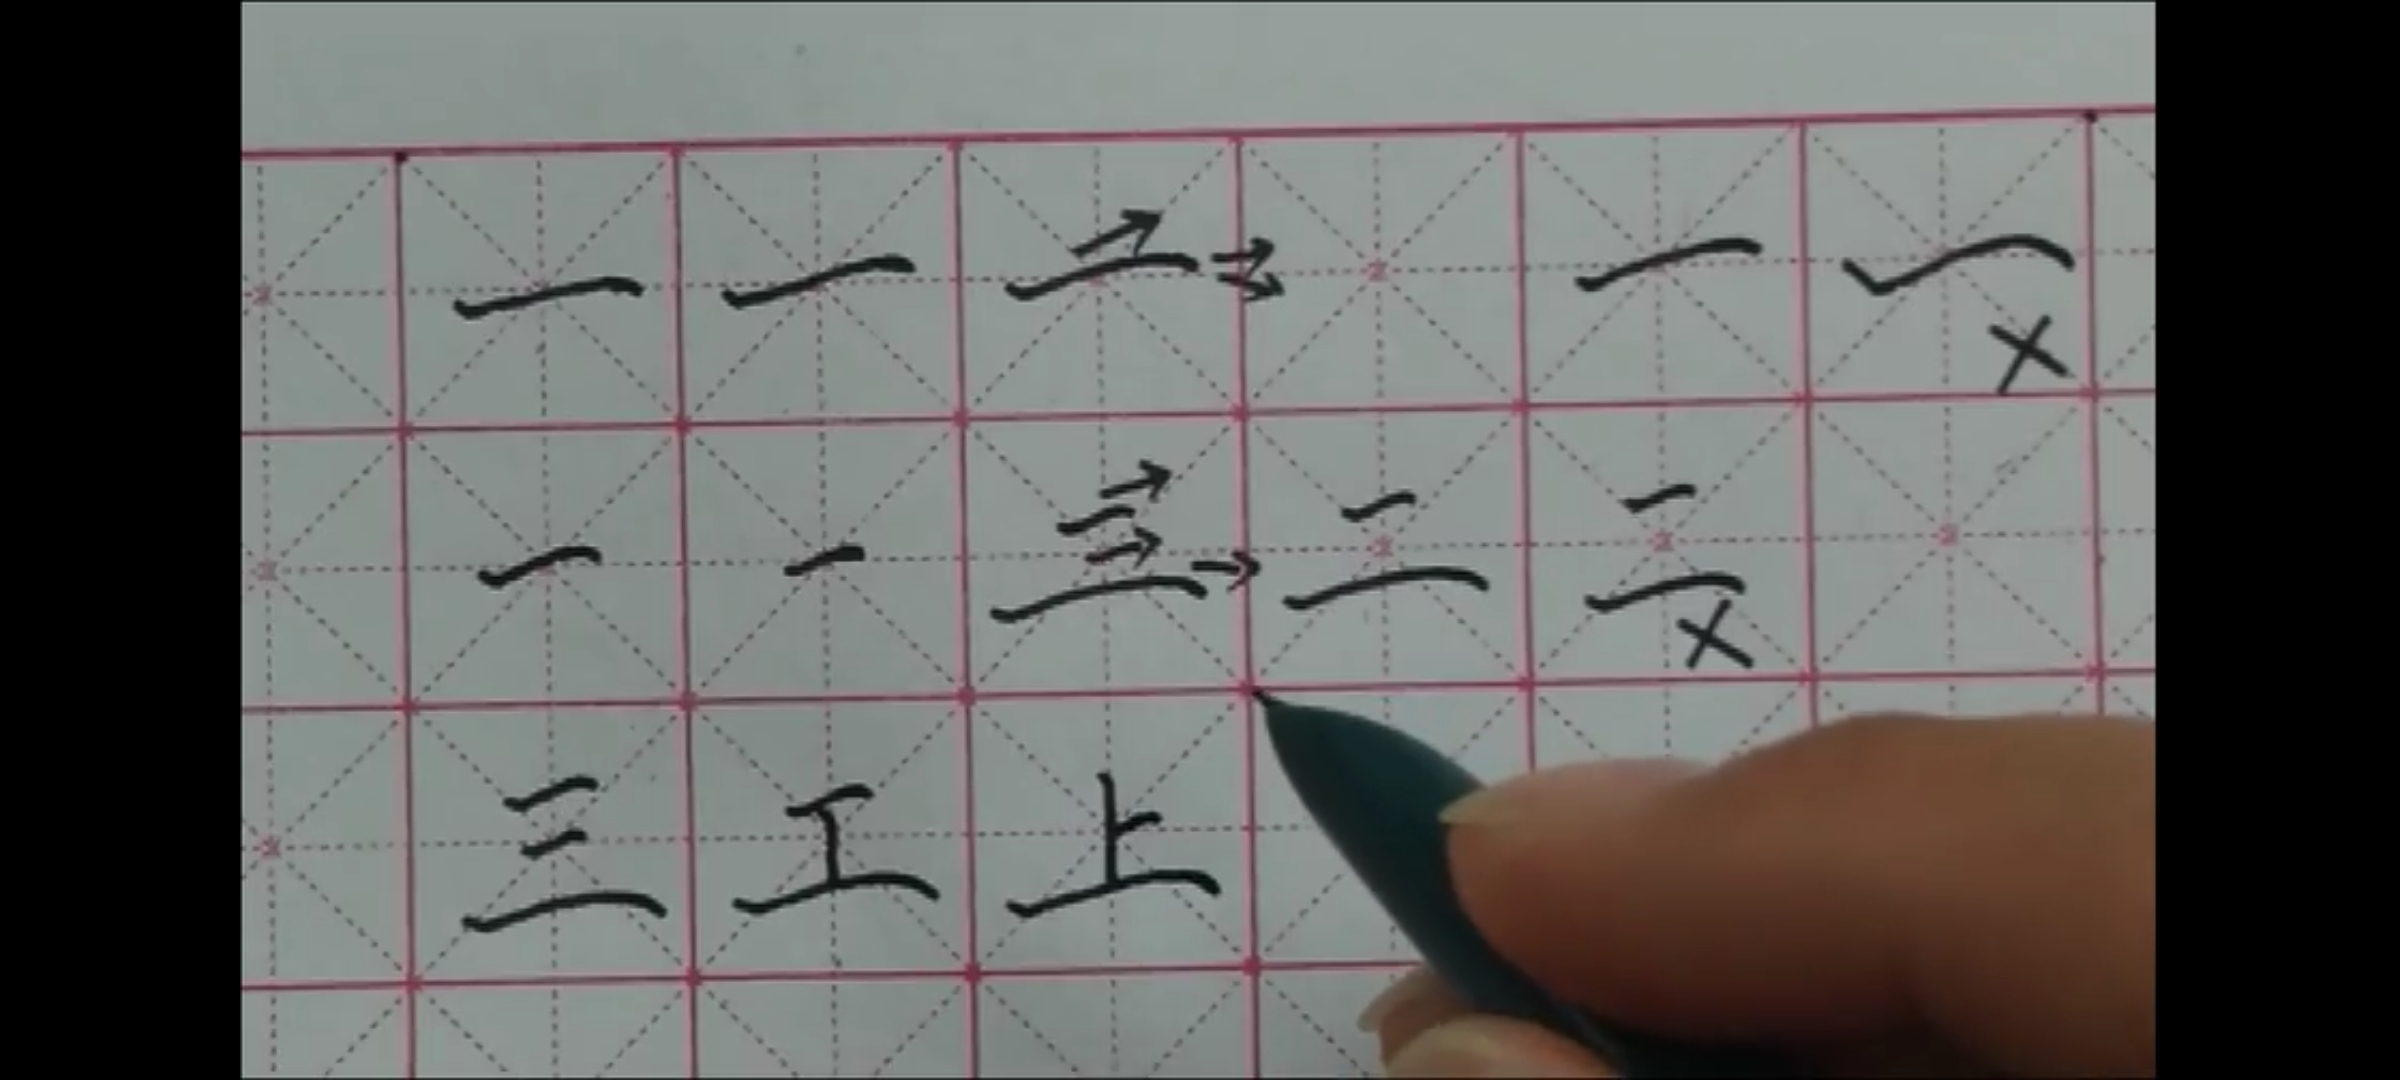 一 一 一 一 一 ×
一 一 二 二 二 ×
三 工 上